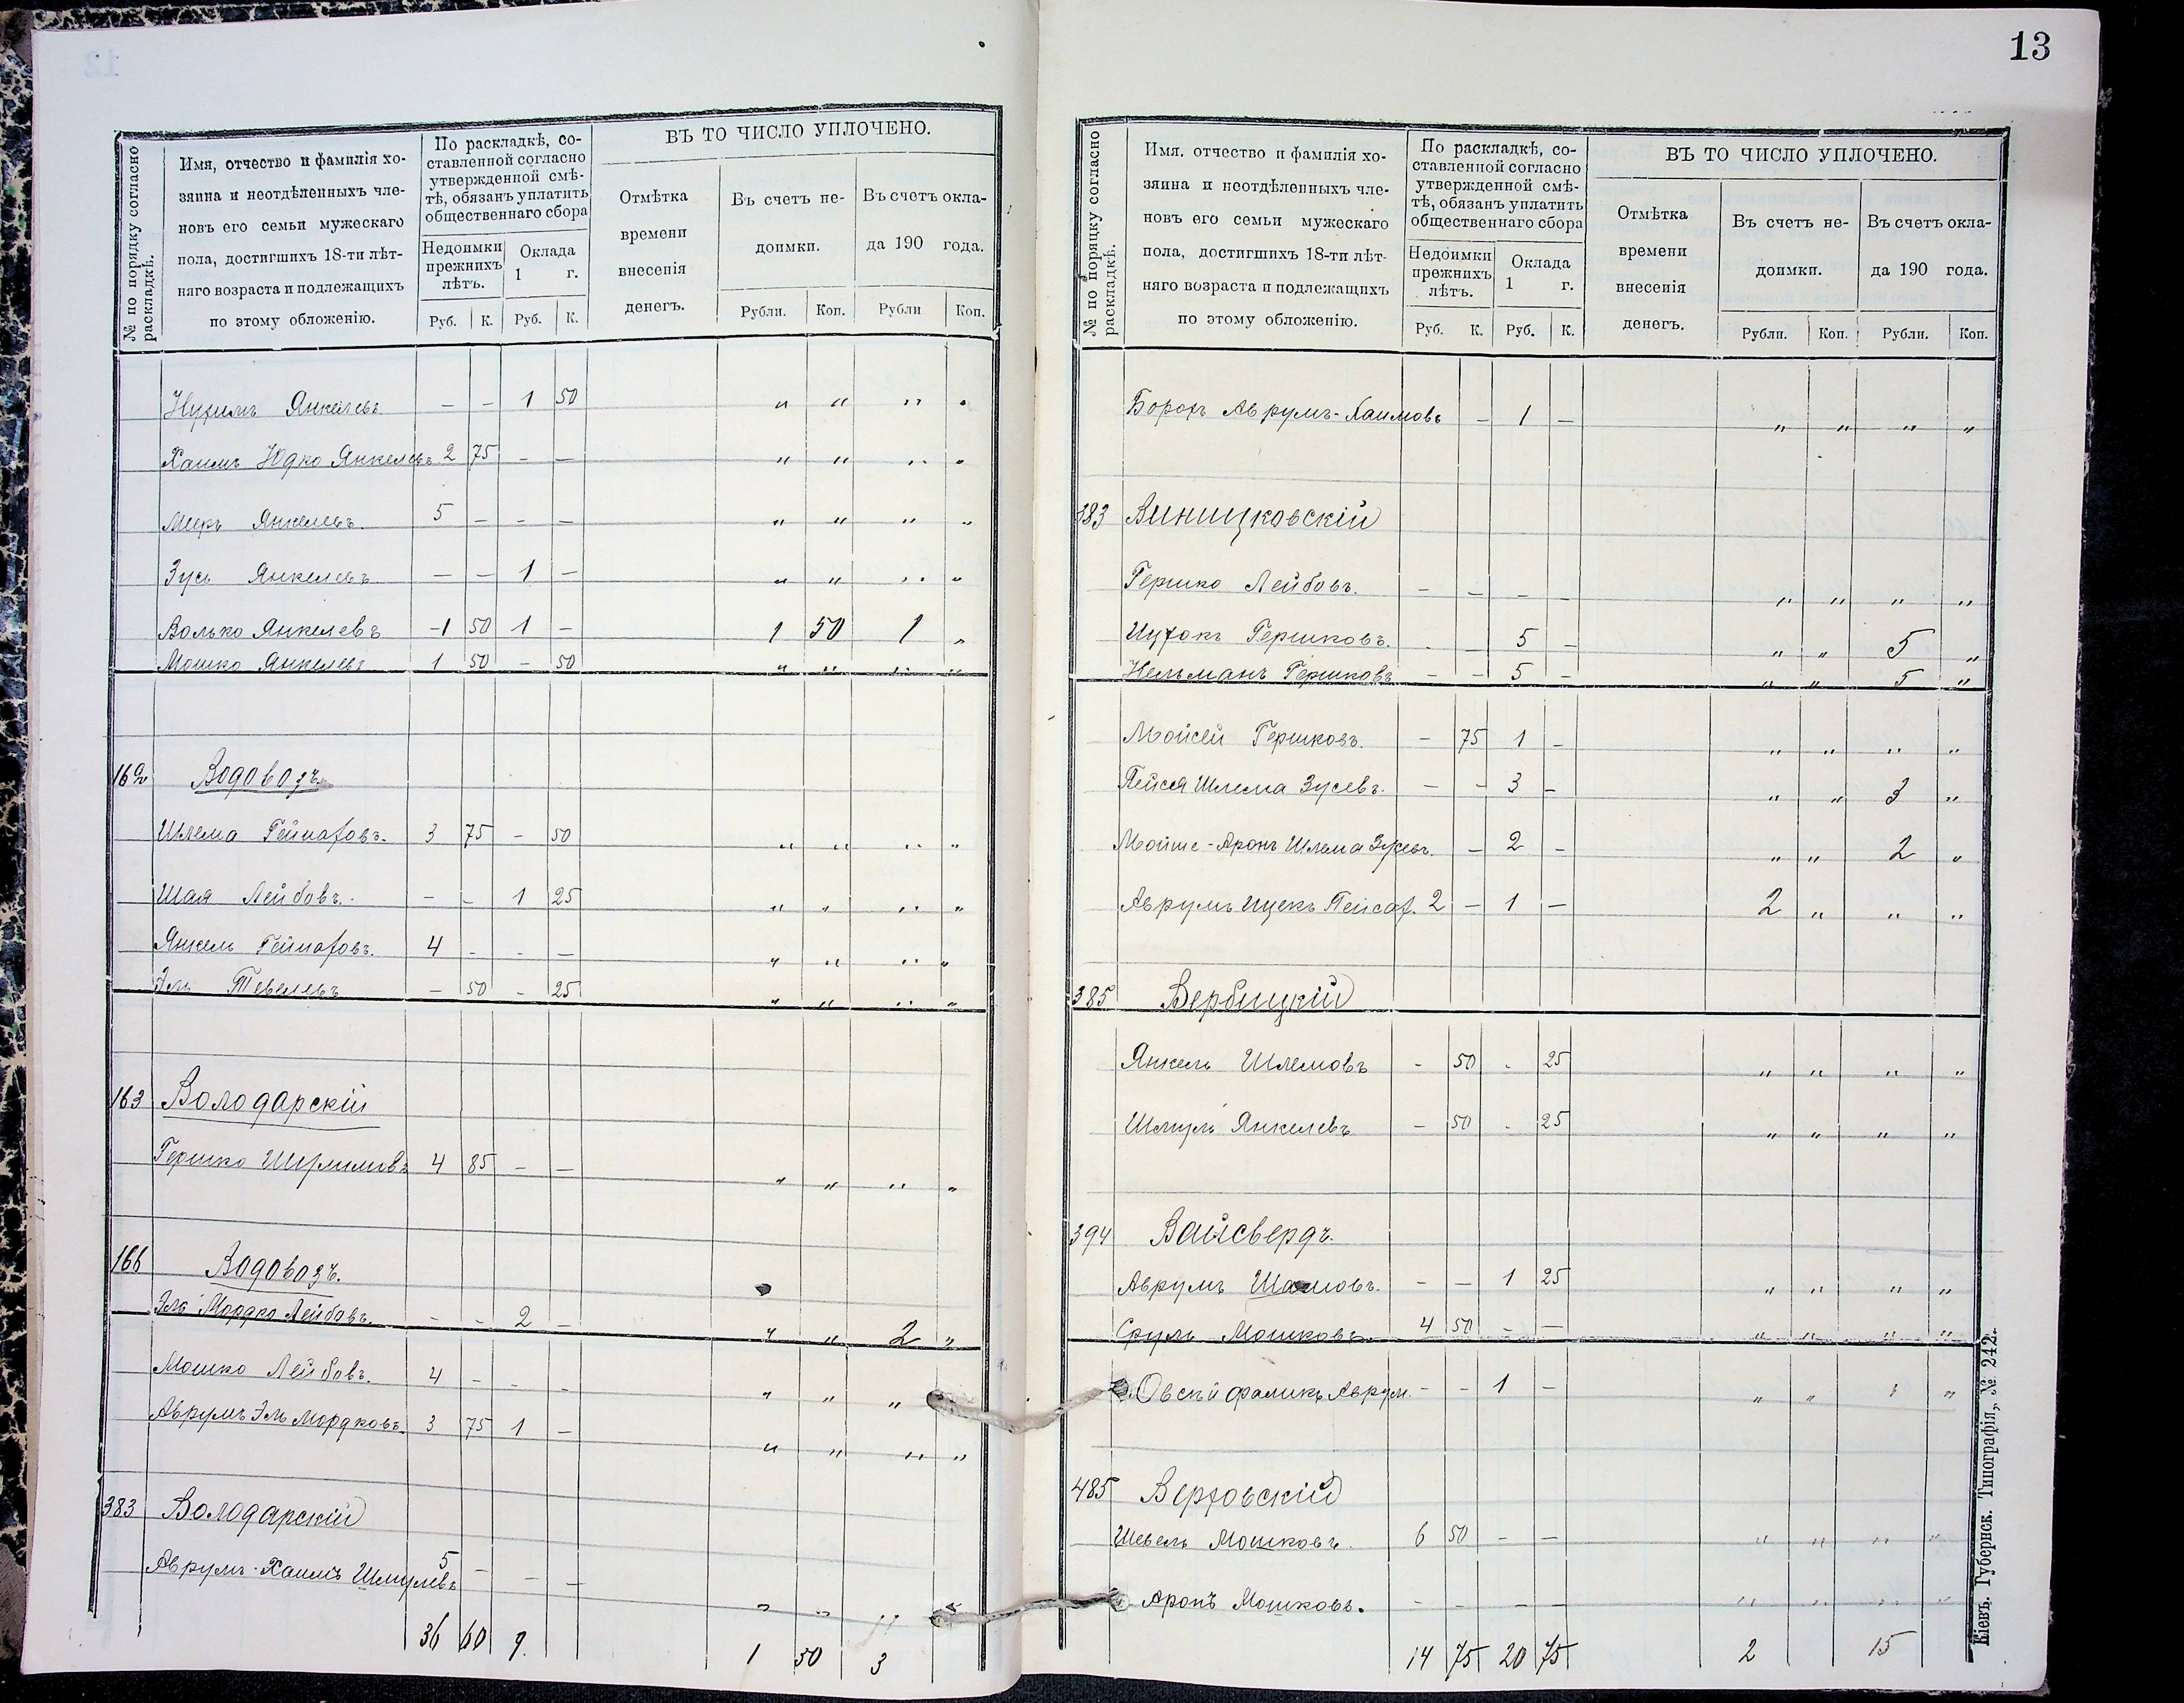 № по порядку согласно раскладкѣ.
Имя, отчество и фамилія хо-
зяина и неотдѣленныхъ чле-
новъ его семьи мужескаго
пола, достигшихъ 18-ти лѣт-
няго возраста и подлежащихъ
по этому обложенію.
По раскладкѣ, со-
ставленной согласно
утвержденной смѣ-
тѣ, обязанъ уплатить
общественнаго сбора
Недоимки прежнихъ лѣтъ.
Оклада 1 г.
Руб. К. Руб. К.
ВЪ ТО ЧИСЛО УПЛОЧЕНО.
Отмѣтка времени внесенія денегъ.
Въ счетъ не-
доимки.
Въ счетъ окла-
да 190 года.
Рубли. Коп. Рубли Коп.
Нухимъ Янкелевъ — — 1 50 " " " "
Хаимъ Юдко Янкелевъ 2 75 — — " " " "
Меръ Янкелевъ. 5 — — — " " " "
Зусь Янкелевъ — — 1 — " " " "
Волько Янкелевъ 1 50 1 — 1 50 1 "
Мошко Янкелевъ 1 50 — 50 " " " "
162 Водовозъ.
Шлема Гейнаховъ. 3 75 — 50 " " " "
Шая Лейбовъ. — — 1 25 " " " "
Янкель Гейнаховъ. 4 — — — " " " "
Эль Тевелевъ — 50 — 25 " " " "
163 Володарскій
Гершко 4 85 — — " " " "
166 Водовозъ.
Эль Мордко Лейбовъ. — — 2 — " " 2 "
Мошко Лейбовъ. 4 — — — " " "
Аврумъ Эль Мордковъ. 3 75 1 — " " " "
383 Володарскій
Аврумъ-Хаимъ Шмулевъ 5 — — — " " "
36 60 9. 1 50 3
13
№ по порядку согласно раскладкѣ.
Имя, отчество и фамилія хо-
зяина и неотдѣленныхъ чле-
новъ его семьи мужескаго
пола, достигшихъ 18-ти лѣт-
няго возраста и подлежащихъ
по этому обложенію.
По раскладкѣ, со-
ставленной согласно
утвержденной смѣ-
тѣ, обязанъ уплатить
общественнаго сбора
Недоимки прежнихъ лѣтъ.
Оклада 1 г.
Руб. К. Руб. К.
ВЪ ТО ЧИСЛО УПЛОЧЕНО.
Отмѣтка времени внесенія денегъ.
Въ счетъ не-
доимки.
Въ счетъ окла-
да 190 года.
Рубли. Коп. Рубли. Коп.
Борохъ Аврумъ-Хаимовъ — 1 — " " " "
383 Виницковскій
Гершко Лейбовъ. — — — — " " " "
Ицхокъ Гершковъ. — — 5 — " " 5 "
Гершковъ — — 5 — " " 5 "
Мойсей Гершковъ. — 75 1 — " " " "
Пейся Шлема Зусевъ. — — 3 — " " 3 "
Мойше-Аронъ Шлема Зусевъ. — 2 — " " 2 "
Аврумъ Ицекъ Пейсах. 2 — 1 — 2 " " "
385 Вербицкій
Янкель Шлемовъ — 50 - 25 " " " "
Шмуль Янкелевъ — 50 - 25 " " " "
394 Вайсбердъ.
Аврумъ — — 1 25 " " " "
Сруль Мошковъ. 4 50 — — " " " "
Аврум. — — 1 — " " "
485 Верховскій
Шевель Мошковъ. 6 50 — — " " " "
Аронъ Мошковъ. — — — — " " " "
14 75 20 75 2 15
Кіевъ. Губернск. Типографія, № 242.